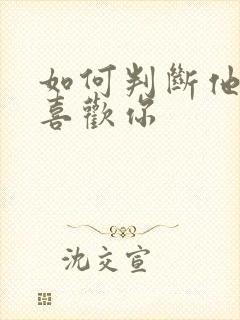 如何判斷他
喜歡你
沈交宣